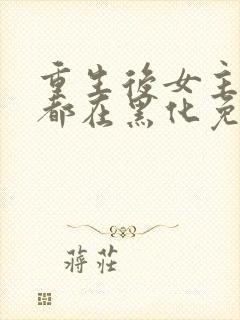 重生后女主
都在黑化免
蒋莊